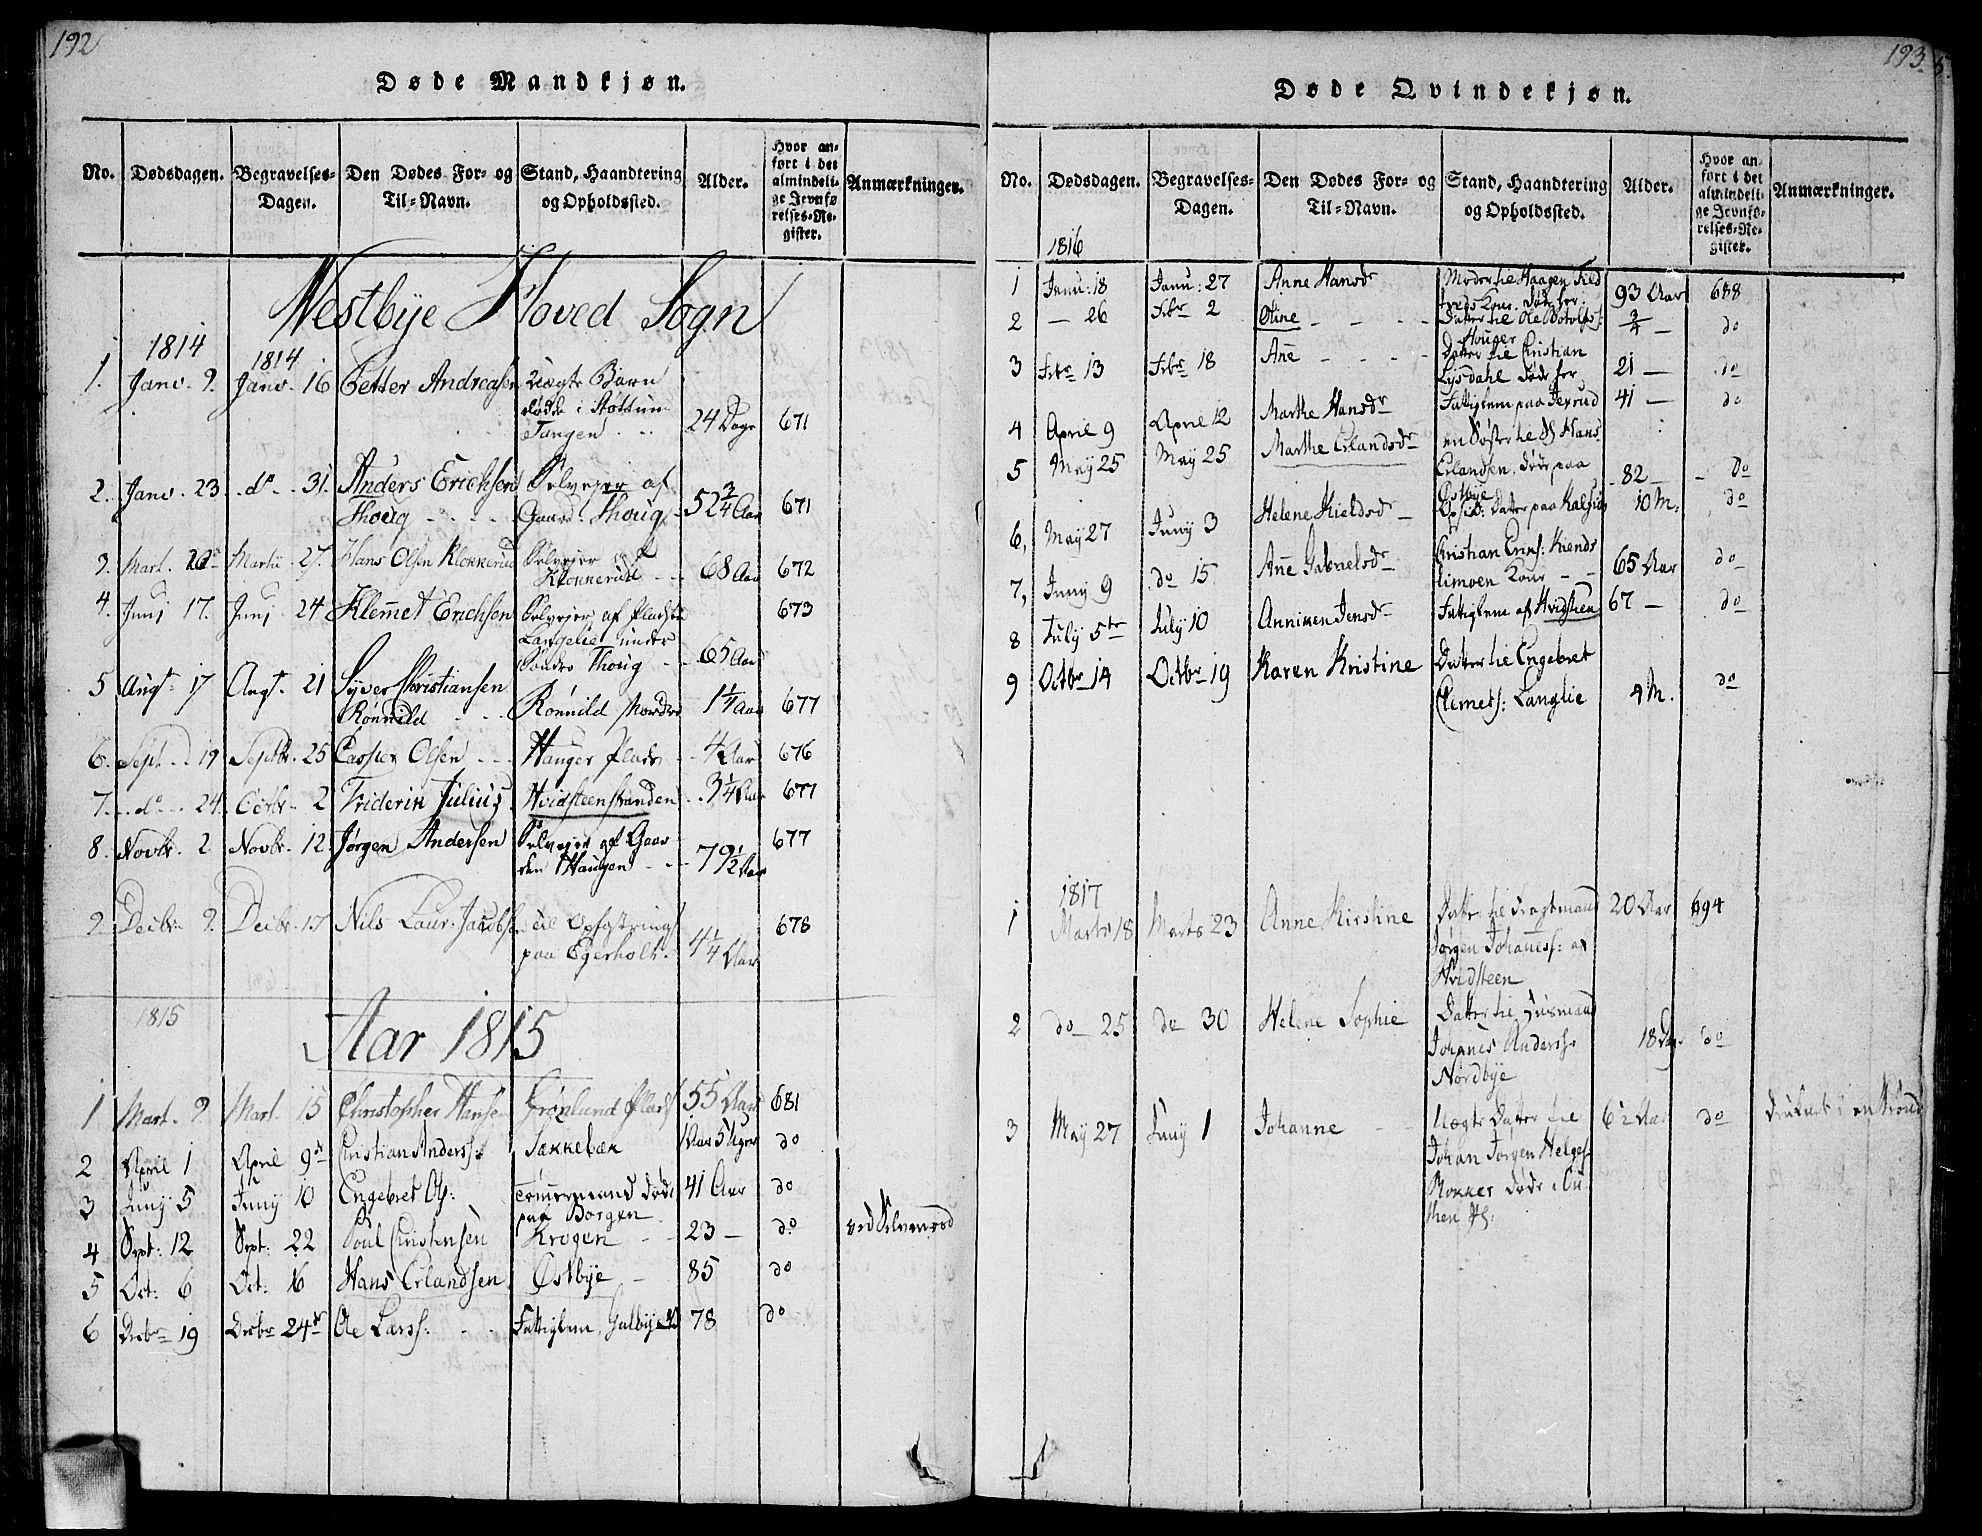 192
Døde Mandkjøn.
No. Dødsdagen. Begravelses-Dagen. Den Dødes For- og Til-Navn. Stand, Haandtering og Opholdssted. Alder. Hvor anført i det almindelige Jevnførelses-Register. Anmærkninger.
Westbÿe Hoved Sogn
1814 1814
1. Janv. 9. Janv. 16 Petter Andreasen Uægte Barn
døde i Støttum
Tangen 24 Dage 671
2. Janv. 23 do. 31. Anders Erichsen Selvejer af
Thoug Gaard Thoug 52 3/4 Aar 671
3. Mart. Martii 27. Hans Olsen Klokkerud Selvejer
Klokkerud 68 Aar 672
4. Junj 17. Junj 24 Klemet Erichsen Selvejer af Pladsen 673
Langelie under
Søndre Thoug 65 Aar
5 Augt. 17 Augt. 21 Syver Christiansen
Rönnild Rönnild Nordre 1 1/4 Aar 677
6. Sept. 19 Septbr. 25 Casper Olsen Hauger Plads 4 Aar 676
7. do 24. Octbr. 2 Friderik Julius Hvidsteenstranden 3 1/4 Aar 677
8. Novbr. 2 Novbr. 12. Jørgen Andersen Selvejer af Gaar
den Haugen 79 1/2 Aar 677
9. Decbr. 9. Decbr. 17 Nils Laur. Jacobsen til Opfostring
paa Egerholt. 4 1/4 Aar 678
1815
Aar 1815
1 Mart. 9. Mart. 15 Christopher Hansen Grönlund Plads 55 Aar 681
2 April 1 April 9de Cristian Anderss: Sækkebæk 1 Aar 5 Uger do
3 Junÿ 5 Junÿ 10 Engebret Ols: Tømermand døde 41 Aar do
paa Borgen
4 Sept: 12 Sept: 22 Poul Christensen Krogen 23 — do ved
5 Oct: 6 Oct: 16 Hans Erlandsen Østbÿe 85 do
6 Decbr 19 Decbr 24de Ole Larss: Fattiglem 78 do
193
Døde Qvindekjøn.
No. Dødsdagen. Begravelses-Dagen. Den Dødes For- og Til-Navn. Stand, Haandtering og Opholdssted. Alder. Hvor anført i det almindelige Jevnførelses-Register. Anmærkninger.
1816
1 Janu: 18 Janu: 27 Anne Hansdr Moder til Haagen
93 Aar 688
2 — 26 Febr 2 Oline Datter til Ole
Houger 3/4 — do
3 Febr 13 Febr 18 Ane Datter til Cristian
Lysdahl døde her 21 — do
4 April 9 April 12 Marthe Hansdr Fattiglem paa 41 — do
5 Maÿ 25 Maÿ 25 Marthe Erlandsdr en Søster til Hans
Erlandsen, døde paa
Østbÿe 82 — do
6, Maÿ 27 Junÿ 3 Helene Kieldsdr Datter paa 10 M: do
7, Junÿ 9 do 15 Ane Gabrielsdr Cristian Erics:
Kone 65 Aar do
8 Julÿ 5te Julÿ 10 Anniken Jensdr Fattiglem af Hvidsteen 67 — do
9 Octbr 14 Octbr 19 Karen Kristine Datter til Engebret
Clemets: Langlie 4 M. do
1817
1 Marts 18 Marts 23 Anne Kirstine Datter til Fragtmand 20 Aar 694
Jørgen Johaness: af
Hvidsteen
2 do 25 do 30 Helene Sophie Datter til Huusmand
Johanes Anderss: 18 Dage do
Nordbÿe
3 Maÿ 27 Junÿ 1 Johanne Uægte Datter til 6 1/2 Aar do druknet i en Brønd
Johan Jørgen Helges